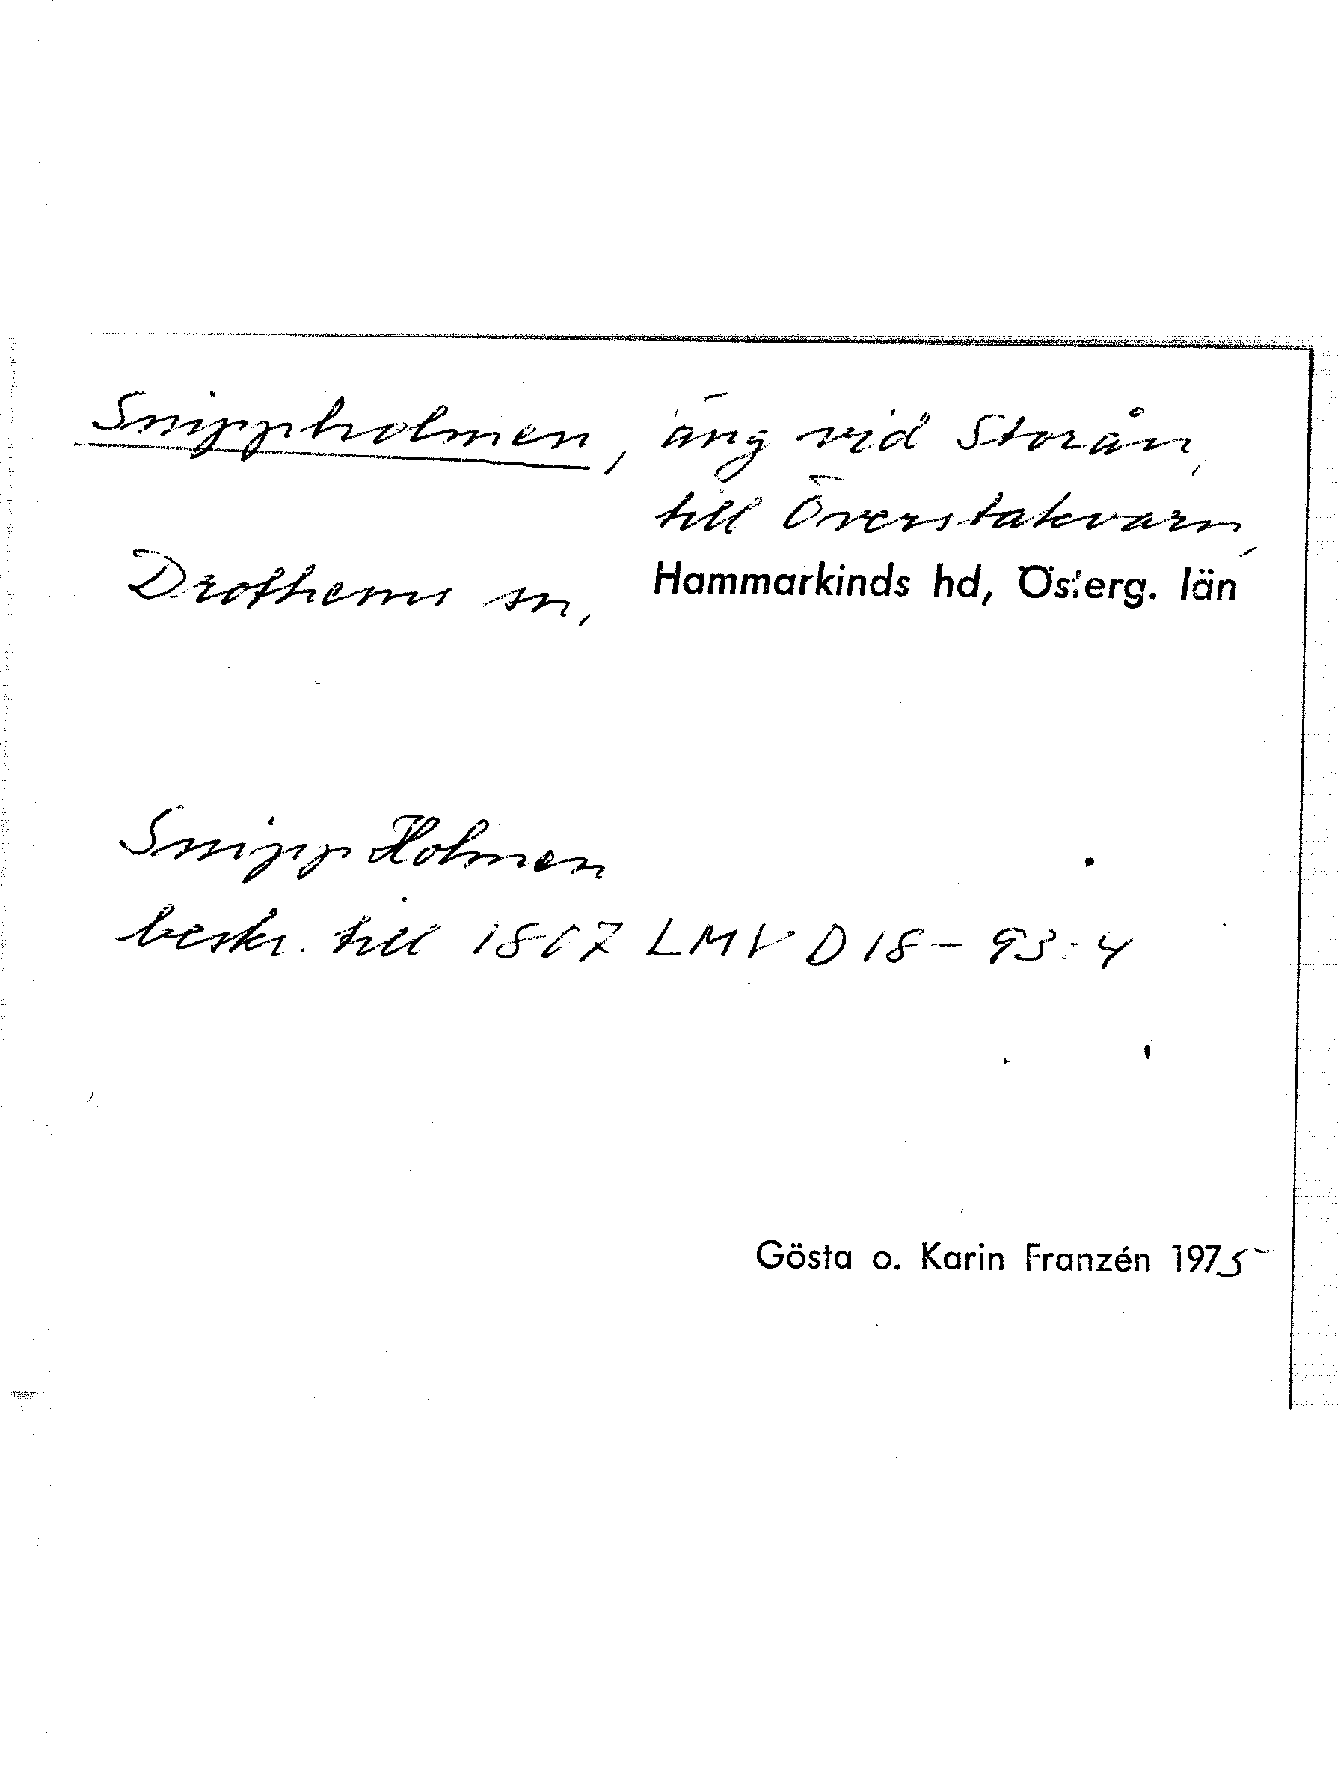 Snippholmen, äng vid Storån,
till Överstakvarn,
Drothems sn, Hammarkinds hd, Österg. län
Snipp Holmen
beskr. till 1807 LMV D 18-93:4
Gösta o. Karin Franzén 1975